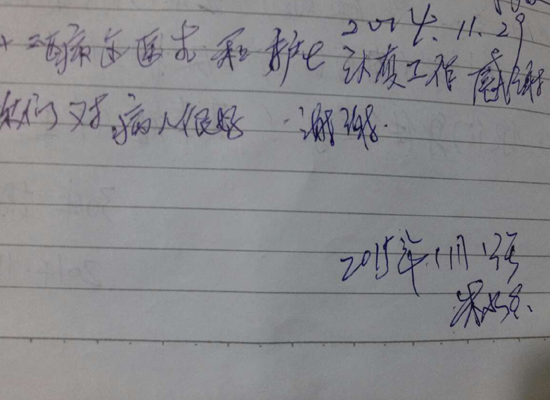 2014.11.29
十二病区医生和护士认真工作感谢
他们对病人很好 谢谢.
2015年1月13号